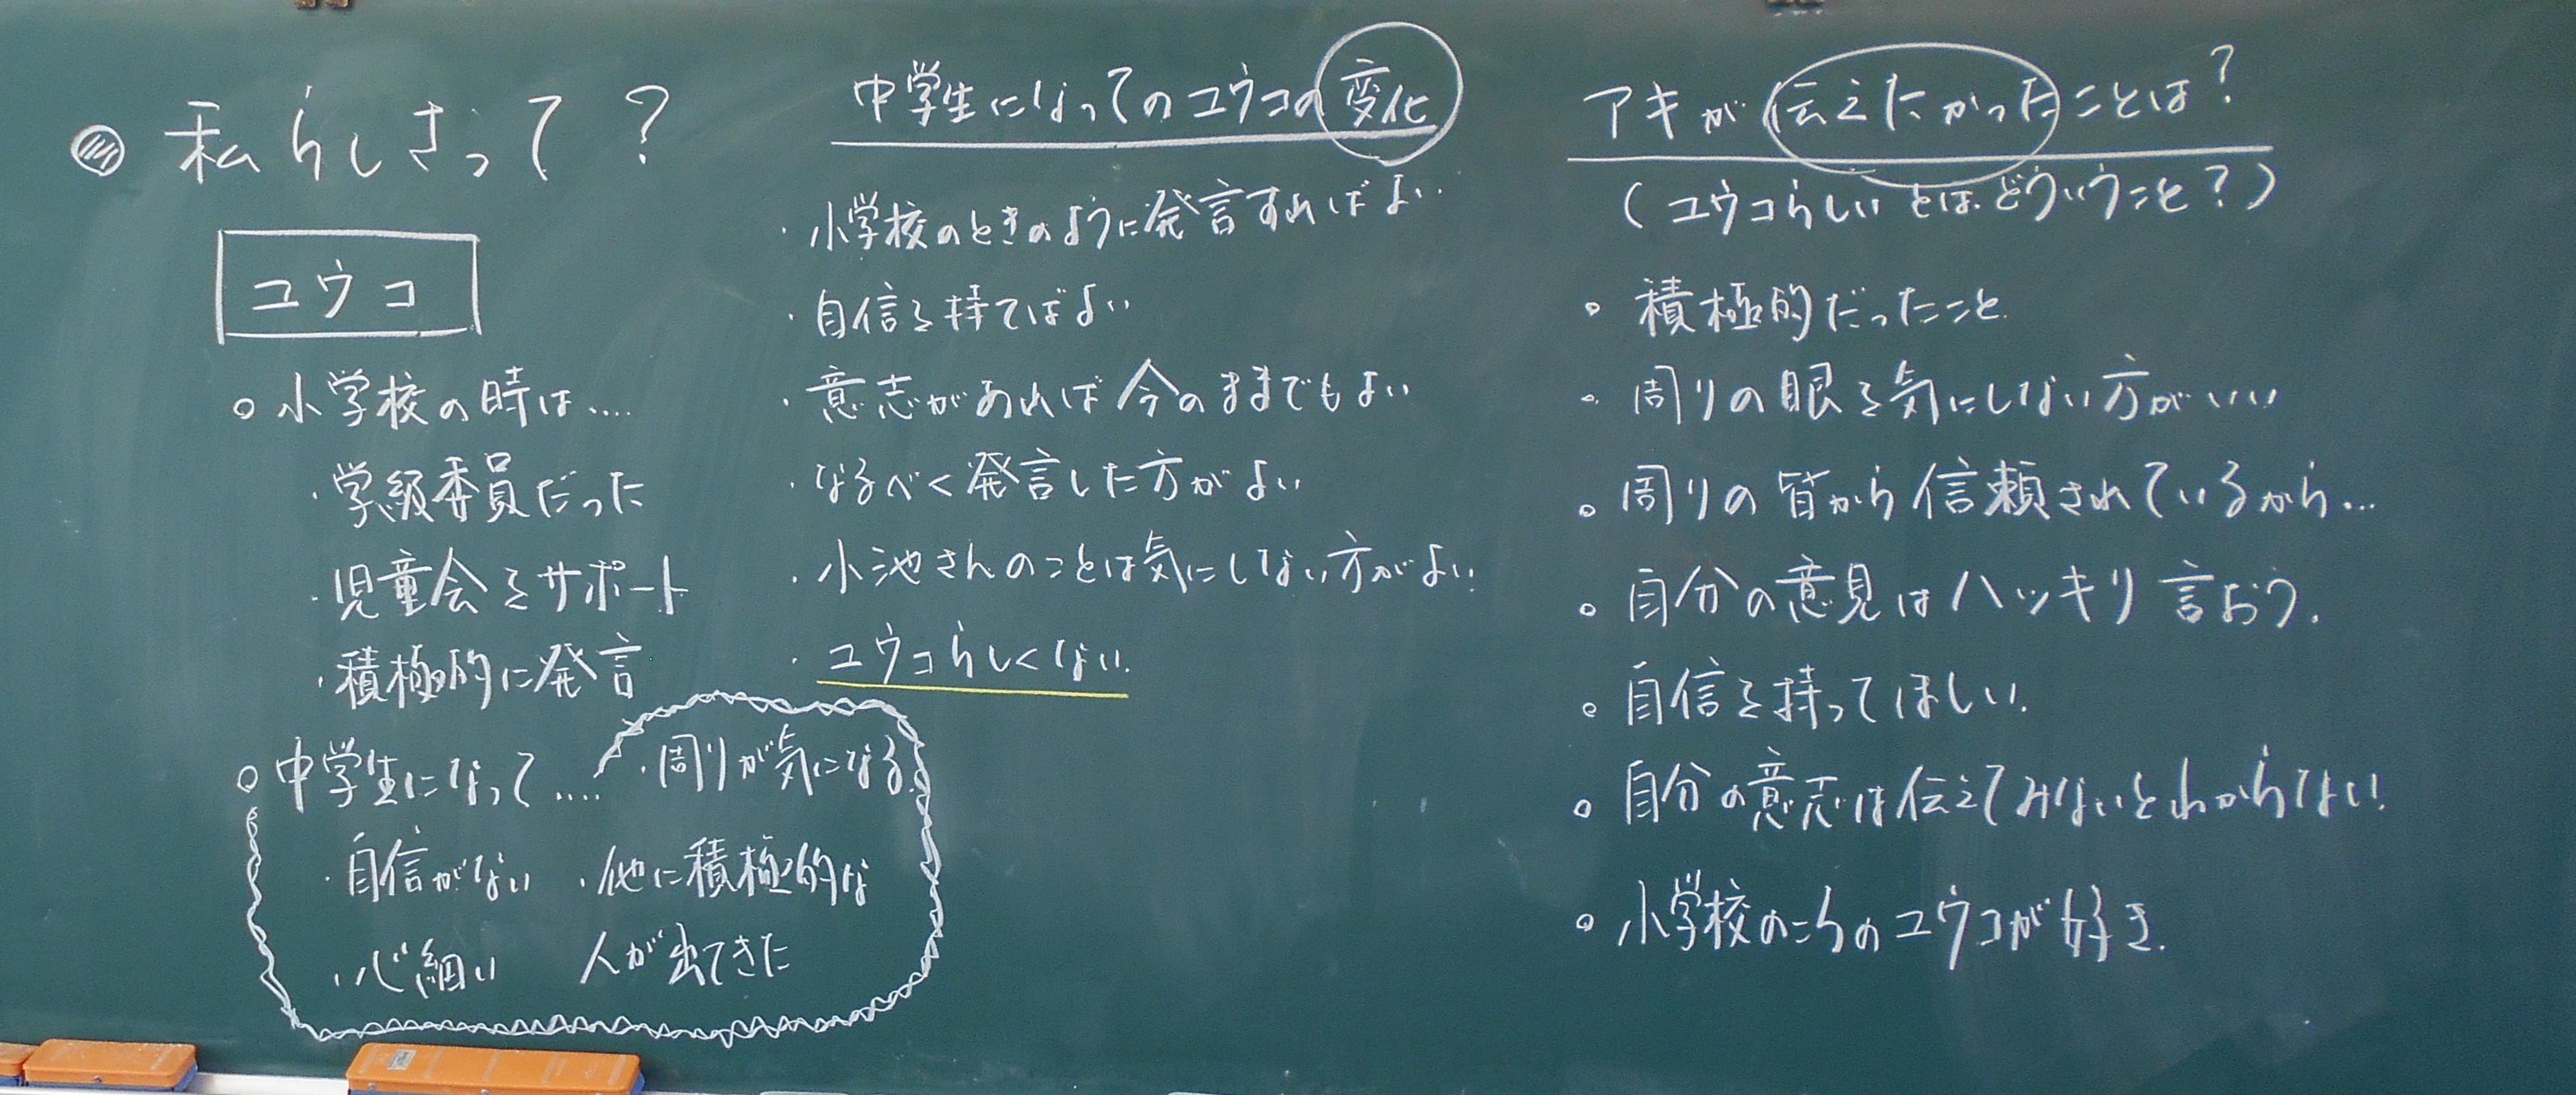 私らしさって？
ユウコ
○小学校の時は....
・学級委員だった
・児童会をサポート
・積極的に発言
○中学生になって....
・周りが気になる
・自信がない
・心細い
・他に積極的な
人が出てきた
中学生になってのユウコの変化
・小学校のときのように発言すればよい
・自信を持てばよい
・意志があれば今のままでもよい
・なるべく発言した方がよい
・小池さんのことは気にしない方がよい
・ユウコらしくない
アキが伝えたかったことは？
（ユウコらしいとはどういうこと？）
○積極的だったこと
○周りの眼を気にしない方がいい
○周りの皆から信頼されているから...
○自分の意見はハッキリ言おう.
○自信を持ってほしい.
○自分の意志は伝えてみないとわからない
○小学校のころのユウコが好き.